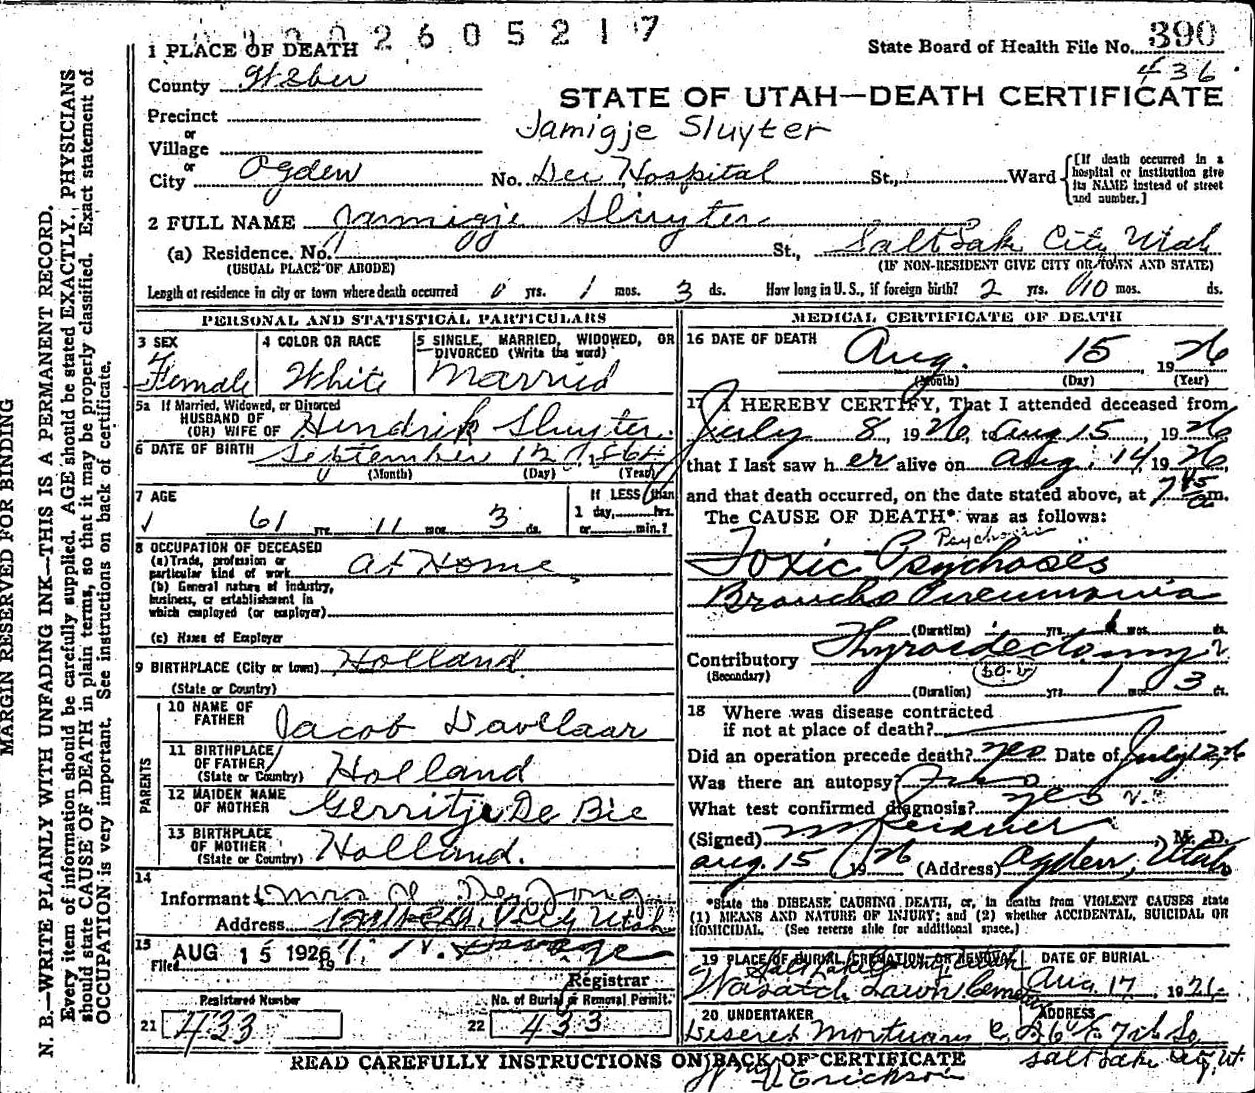 2 6 0 5 2 1 7
1 PLACE OF DEATH
State Board of Health File No. 390
436
County Weber
STATE OF UTAH—DEATH CERTIFICATE
Precinct
or
Jamigje Sluyter
Village
or
City Ogden No. Dee Hospital St., Ward
[If death occurred in a hospital or institution give its NAME instead of street and number.]
2 FULL NAME Jamigje Sluyter
(a) Residence. No. St., Salt Lake City Utah
(USUAL PLACE OF ABODE) (IF NON-RESIDENT GIVE CITY OR TOWN AND STATE)
Length of residence in city or town where death occurred 0 yrs. 1 mos. 3 ds. How long in U.S., if foreign birth? 2 yrs. 10 mos. ds.
PERSONAL AND STATISTICAL PARTICULARS
3 SEX
Female
4 COLOR OR RACE
White
5 SINGLE, MARRIED, WIDOWED, OR DIVORCED (Write the word)
Married
5a If Married, Widowed, or Divorced
HUSBAND OF
(OR) WIFE OF Hendrik Sluyter
6 DATE OF BIRTH September 12 1864
(Month) (Day) (Year)
7 AGE
61 yrs. 11 mos. 3 ds.
If LESS than
1 day, hrs.
or min.?
8 OCCUPATION OF DECEASED
(a) Trade, profession or
particular kind of work At Home
(b) General nature of industry,
business, or establishment in
which employed (or employer)
(c) Name of Employer
9 BIRTHPLACE (City or town) Holland
(State or Country)
PARENTS
10 NAME OF
FATHER Jacob Davelaar
11 BIRTHPLACE
OF FATHER
(State or Country) Holland
12 MAIDEN NAME
OF MOTHER Gerritje De Bie
13 BIRTHPLACE
OF MOTHER
(State or Country) Holland.
14
Informant Mrs De Jong
Address Salt Lake City Utah
15
Filed AUG 15 1926 19
Registrar
Registered Number
21 433
No. of Burial or Removal Permit.
22 433
MEDICAL CERTIFICATE OF DEATH
16 DATE OF DEATH Aug. 15 1926
(Month) (Day) (Year)
17 I HEREBY CERTIFY, That I attended deceased from
July 8, 1926, to Aug 15, 1926
that I last saw her alive on Aug. 14, 1926,
and that death occurred, on the date stated above, at 7 45 a m.
The CAUSE OF DEATH* was as follows:
Psychosis
Toxic Psychoses
Broncho Pneumonia
(Duration) yrs. mos. ds.
Contributory Thyroidectomy
(Secondary)
(Duration) yrs. 1 mos. 3 ds.
18 Where was disease contracted
if not at place of death?
Did an operation precede death? yes Date of July 26
Was there an autopsy? no
What test confirmed diagnosis? yes
(Signed) , M. D.
Aug. 15 1926 (Address) Ogden, Utah
*State the DISEASE CAUSING DEATH, or, in deaths from VIOLENT CAUSES state
(1) MEANS AND NATURE OF INJURY; and (2) whether ACCIDENTAL, SUICIDAL OR
HOMICIDAL. (See reverse side for additional space.)
19 PLACE OF BURIAL, CREMATION, OR REMOVAL
Salt Lake County, Utah
Wasatch Lawn Cemetery
DATE OF BURIAL
Aug. 17, 1926
20 UNDERTAKER
Deseret Mortuary
ADDRESS
36 E. 7th So
Salt Lake City, Ut.
Erickson
READ CAREFULLY INSTRUCTIONS ON BACK OF CERTIFICATE
MARGIN RESERVED FOR BINDING
N. B.—WRITE PLAINLY WITH UNFADING INK—THIS IS A PERMANENT RECORD.
Every item of information should be carefully supplied. AGE should be stated EXACTLY. PHYSICIANS
should state CAUSE OF DEATH in plain terms, so that it may be properly classified. Exact statement of
OCCUPATION is very important. See instructions on back of certificate.